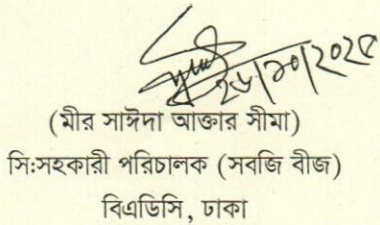 ২৬/১০/২০২৫
(মীর সাঈদা আক্তার সীমা)
সিঃসহকারী পরিচালক (সবজি বীজ)
বিএডিসি, ঢাকা